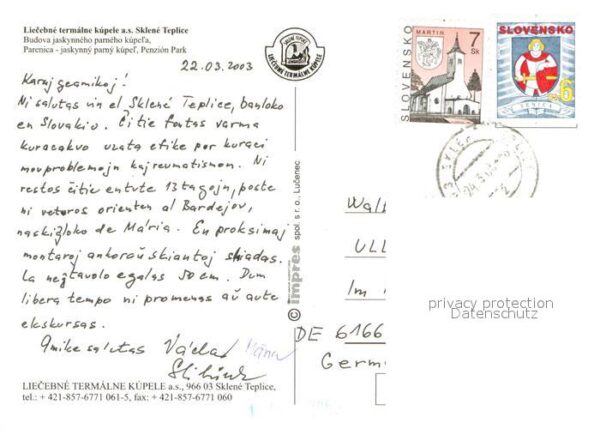 Liečebné termálne kúpele a.s. Sklené Teplice
Budova jaskynného parného kúpeľa,
Parenica - jaskynný parný kúpeľ, Penzión Park
22.03.2003
Karaj geamikoj!
Ni salutas vin el Sklené Teplice, banloko
en Slovakio. Ĉi tie fontas varma
kuracakvo uzata efike por kuraci
movproblemojn kaj reumatismon. Ni
restos ĉi tie entute 13 tagojn, poste
ni veturos orienten al Bardejov,
naskiĝloko de Mária. En proksimaj
montaroj ankoraŭ skiantoj skiadas.
La neĝtavolo egalas 50 cm. Dum
libera tempo ni promenas aŭ aute
ekskursas.
Amike salutas Václav
LIEČEBNÉ TERMÁLNE KÚPELE a.s., 966 03 Sklené Teplice,
tel.: + 421-857-6771 061-5, fax: + 421-857-6771 060
LIEČEBNÉ TERMÁLNE KÚPELE
© impres spol. s r. o., Lučenec
SLOVENSKO
MARTIN
7
Sk
SLOVENSKO
SENICA
6
Walt
ULL
Im
DE 6166
Germ
privacy protection
Datenschutz